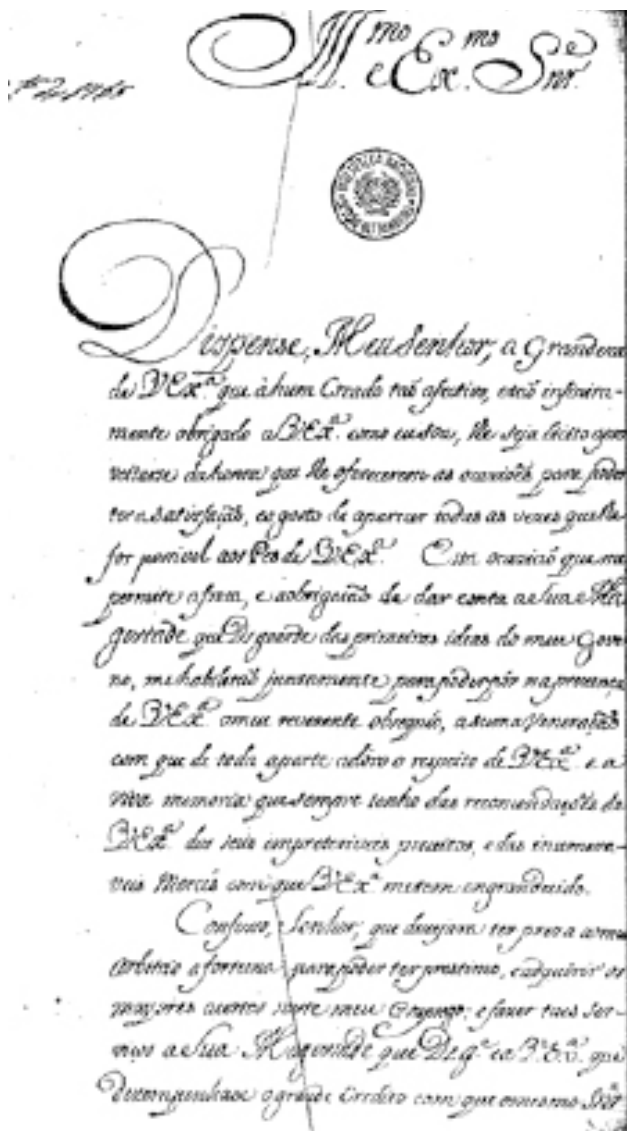 Ill.mo e Ex.mo Snr.e
de 1765
BIBLIOTECA NACIONAL
Dispense, Meu Senhor, a Grandeza
de V Ex.a que à hum Creado taõ afectivo, e taõ infinita-
mente obrigado a V Ex.a como eu sou, lhe seja licito apro
veitarse da honra que lhe oferecerem as occasiões para poder
ter a satisfaçaõ, e o gosto de aparecer todas as vezes que lhe
for possivel aos Pés de V Ex.a Esta occasiaõ que me
permite a frota, e a obrigaçaõ de dar conta a Sua Ma
gestade que Ds guarde das primeiras ideas do meu Gover
no, me habilitaõ juntamente para poder pôr na prezença
de V Ex.a o meu reverente obsequio, a suma veneraçaõ
com que de toda a parte adóro o respeito de V Ex.a e a
viva memoria que sempre tenho das recomendações de
V Ex.a dos seus preceitos, e das innumera-
veis Mercês com que V Ex.a me tem engrandecido.
Confesso, Senhor, que dezejava ter preza a o meu
arbitrio a fortuna para poder ter prestimo, e adquirir os
mayores acertos neste meu Governo; e fazer taes ser-
viços a Sua Magestade que De g.e e a V. Ex.a que
dezempenhase o grande Credito com que o mesmo Snr